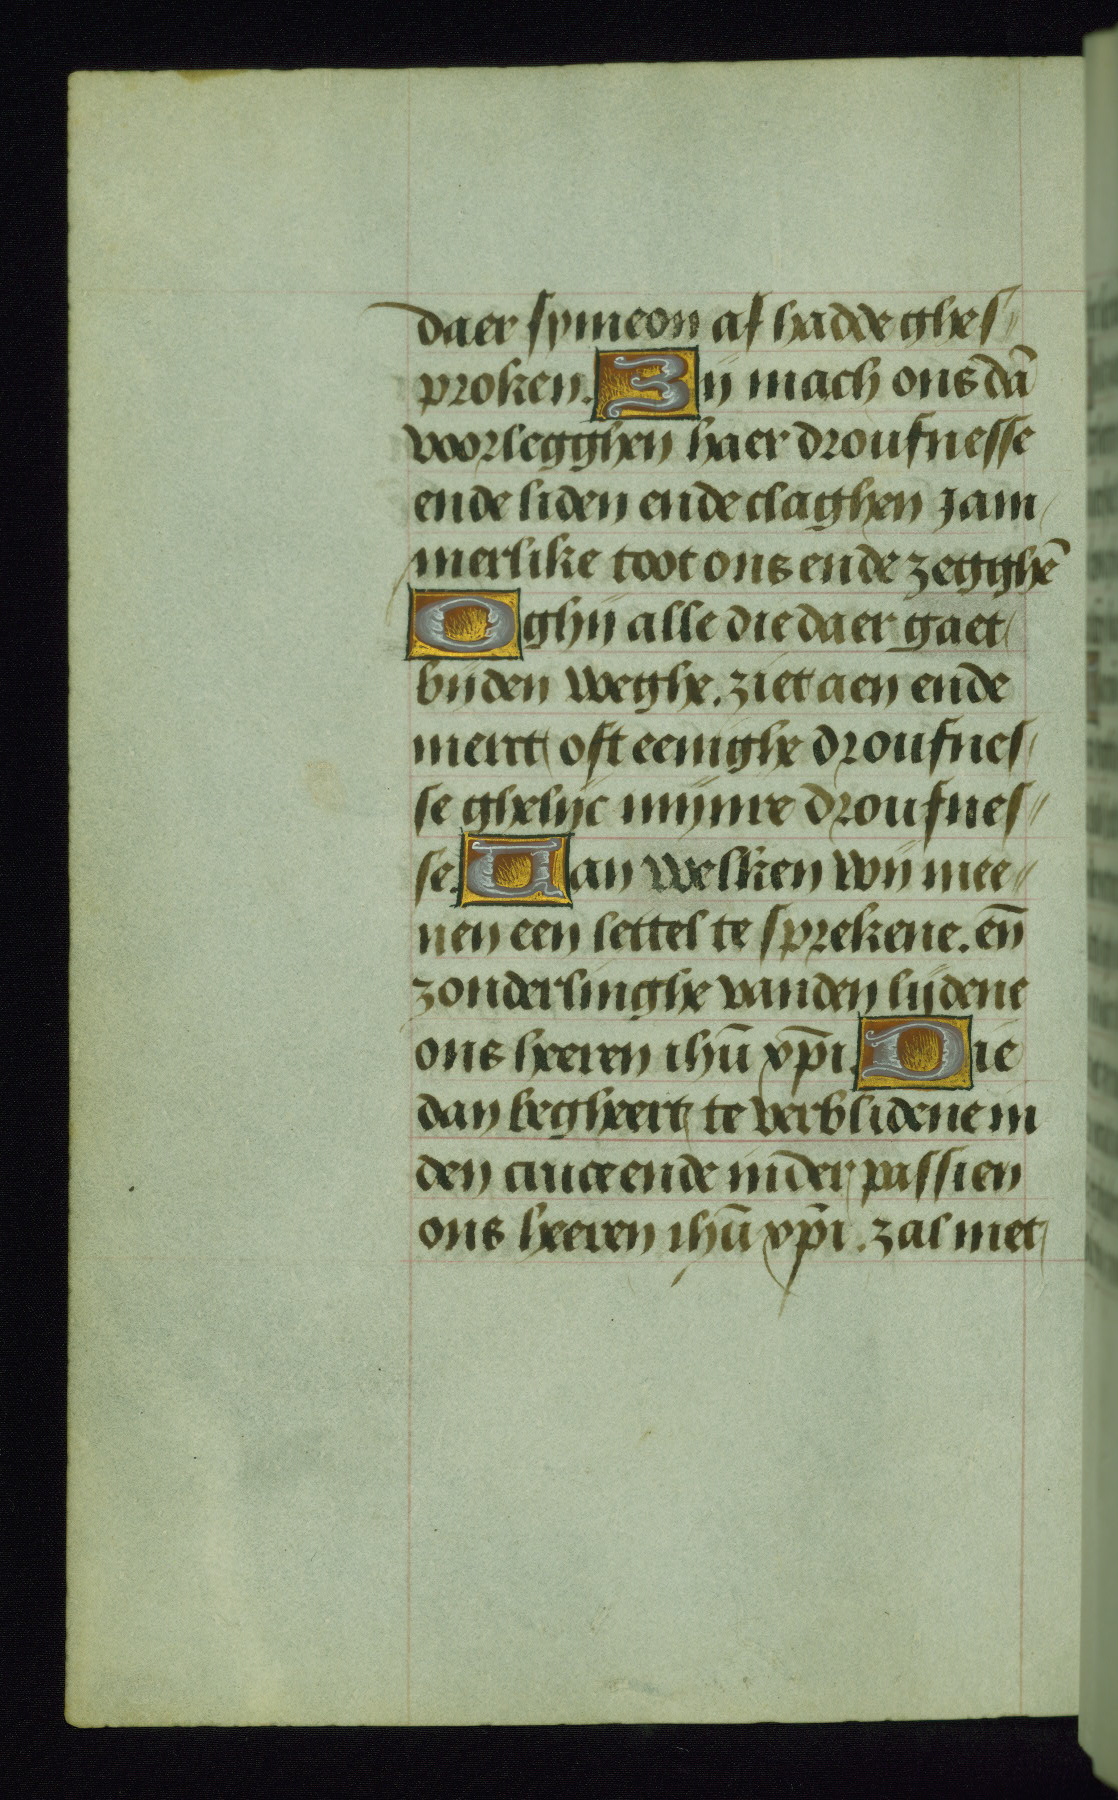 daer symeon af hadde ghes
proken. Zij mach ons dā
voorlegghen haer droufnesse
ende liden ende claghen jam
merlike toot ons ende zegghē
O ghij alle die daer gaet
bijden weghe. ziet aen ende
merct oft eenighe droufnes
se ghelijc mijnre droufnes
se. Van welken wij mee
nen een lettel te sprekene. eñ
zonderlinghe vanden lijdene
ons heeren ihū xp̄i. Die
dan begheert te verblidene in
den cruce ende inder passien
ons heeren ihū xp̄i. zal met